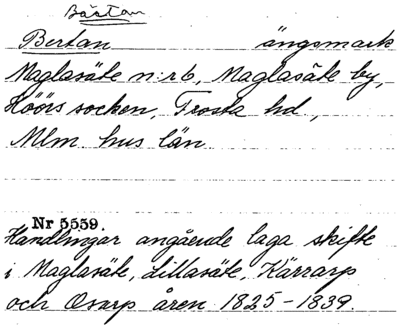 Bästan
Bertan ängsmark
Maglasäte n:rb, Maglasäte by,
Höörs socken, Frosta hd,
Mlm hus län
Nr 5559.
Handlingar angående laga skifte
i Maglasäte, Lillasäte, Kärrarp
och Osarp åren 1825-1839.